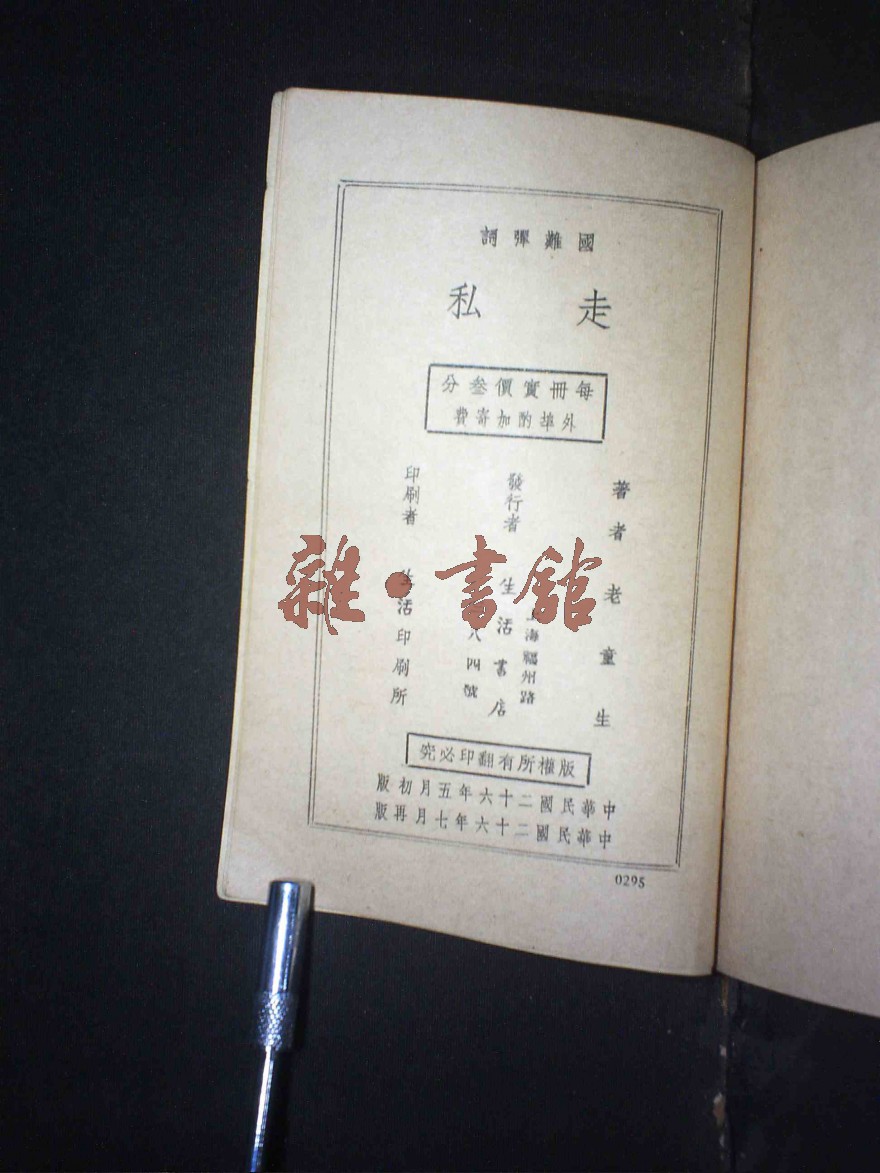 國難彈詞
走私
每冊實價叁分
外埠酌加寄費
著者 老童生
發行者 生活書店
海福州路
八四號
印刷者 生活印刷所
版權所有翻印必究
中華民國二十六年五月初版
中華民國二十六年七月再版
0295
雜·書館